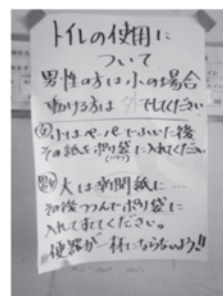 トイレの使用に
ついて
男性の方は小の場合
動ける方は外でしてください
女小はペーパーでふいた後
その紙をポリ袋に入れてください
男女大は新聞紙に…
その後つつんでポリ袋に
入れてすててください。
便器が一杯にならないよう!!